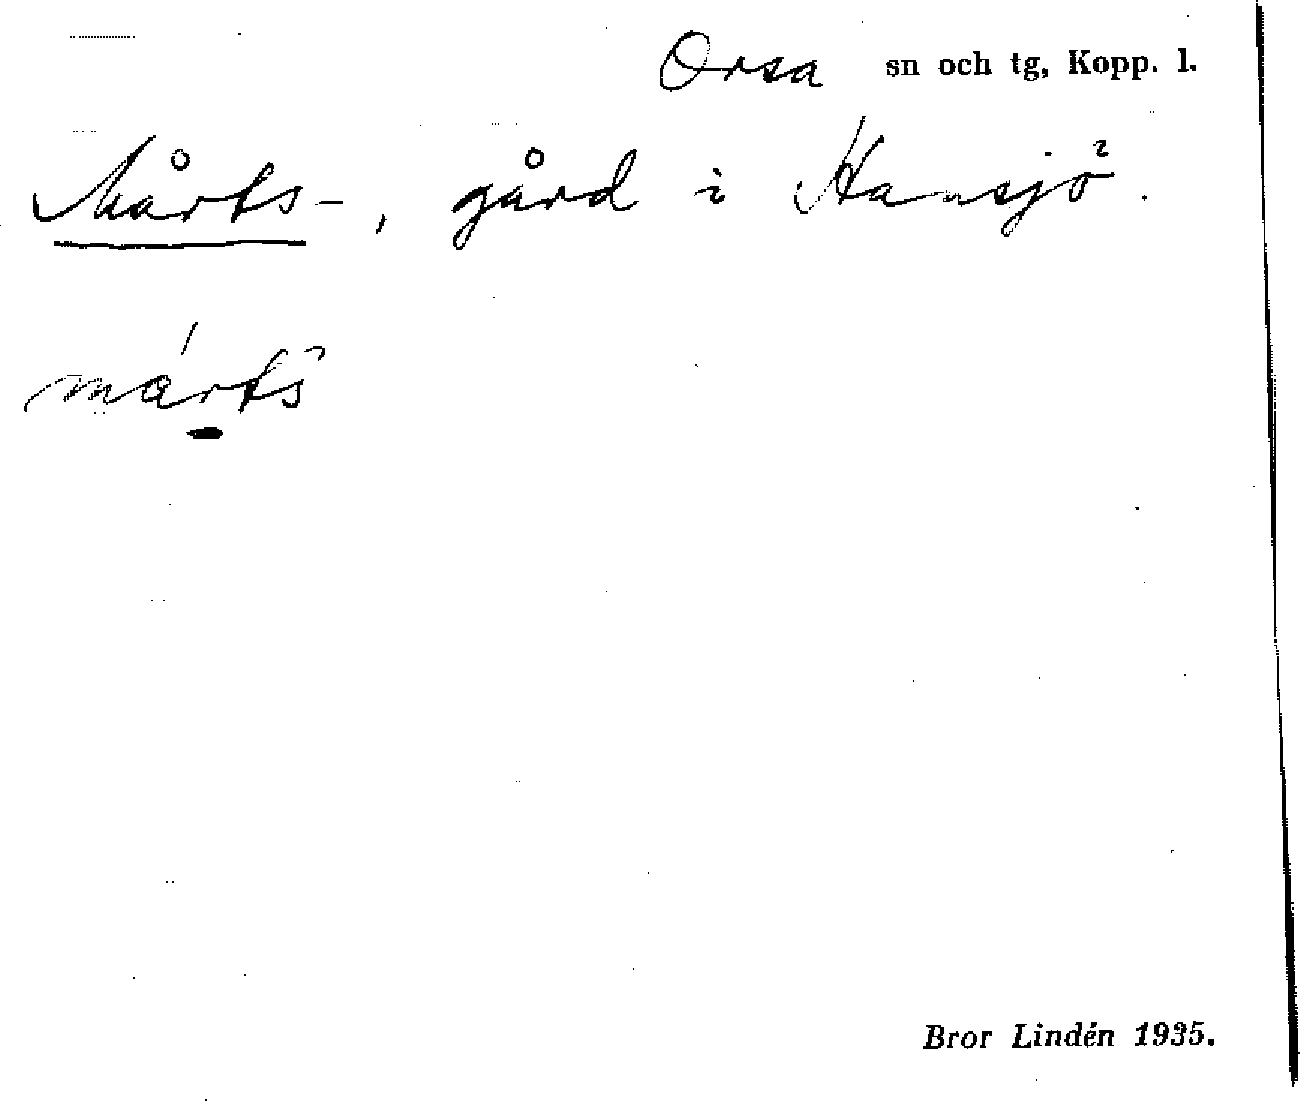 Orsa sn och tg, Kopp. l.
Mårts-, gård i Hansjö.
márts
Bror Lindén 1935.